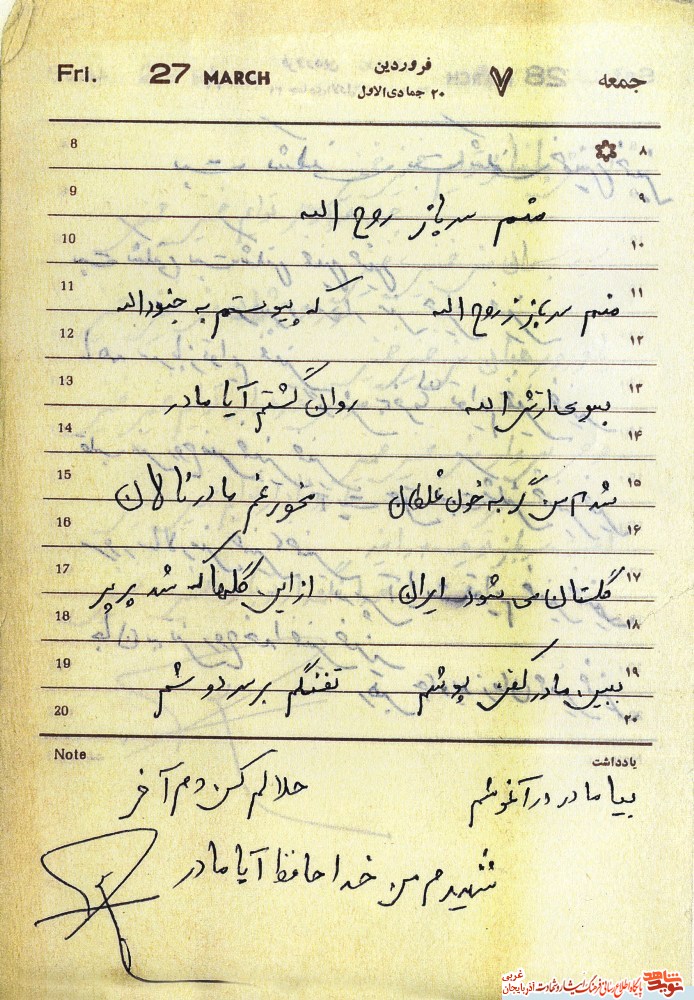 Fri. 27 MARCH فروردین ۷ جمعه
۲۰ جمادی‌الاول
8 ۸
9 ۹
منم سرباز روح الله
10 ۱۰
11 ۱۱
منم سرباز روح الله که پیوستم به جنودالله
12 ۱۲
13 ۱۳
بسوی ارتش الله روان گشتم آیا مادر
14 ۱۴
15 ۱۵
شدم من گر به خون غلطان نخور غم مادر نالان
16 ۱۶
17 ۱۷
گلستان می شود ایران از این گلها که شد پرپر
18 ۱۸
19 ۱۹
ببین مادر کفن پوشم تفنگم بر سر دوشم
20 ۲۰
Note یادداشت
بیا مادر در آغوشم حلالم کن دم آخر
شهیدم من خدا حافظ آیا مادر
نوید شاهد
پایگاه اطلاع رسانی فرهنگ ایثار و شهادت آذربایجان غربی